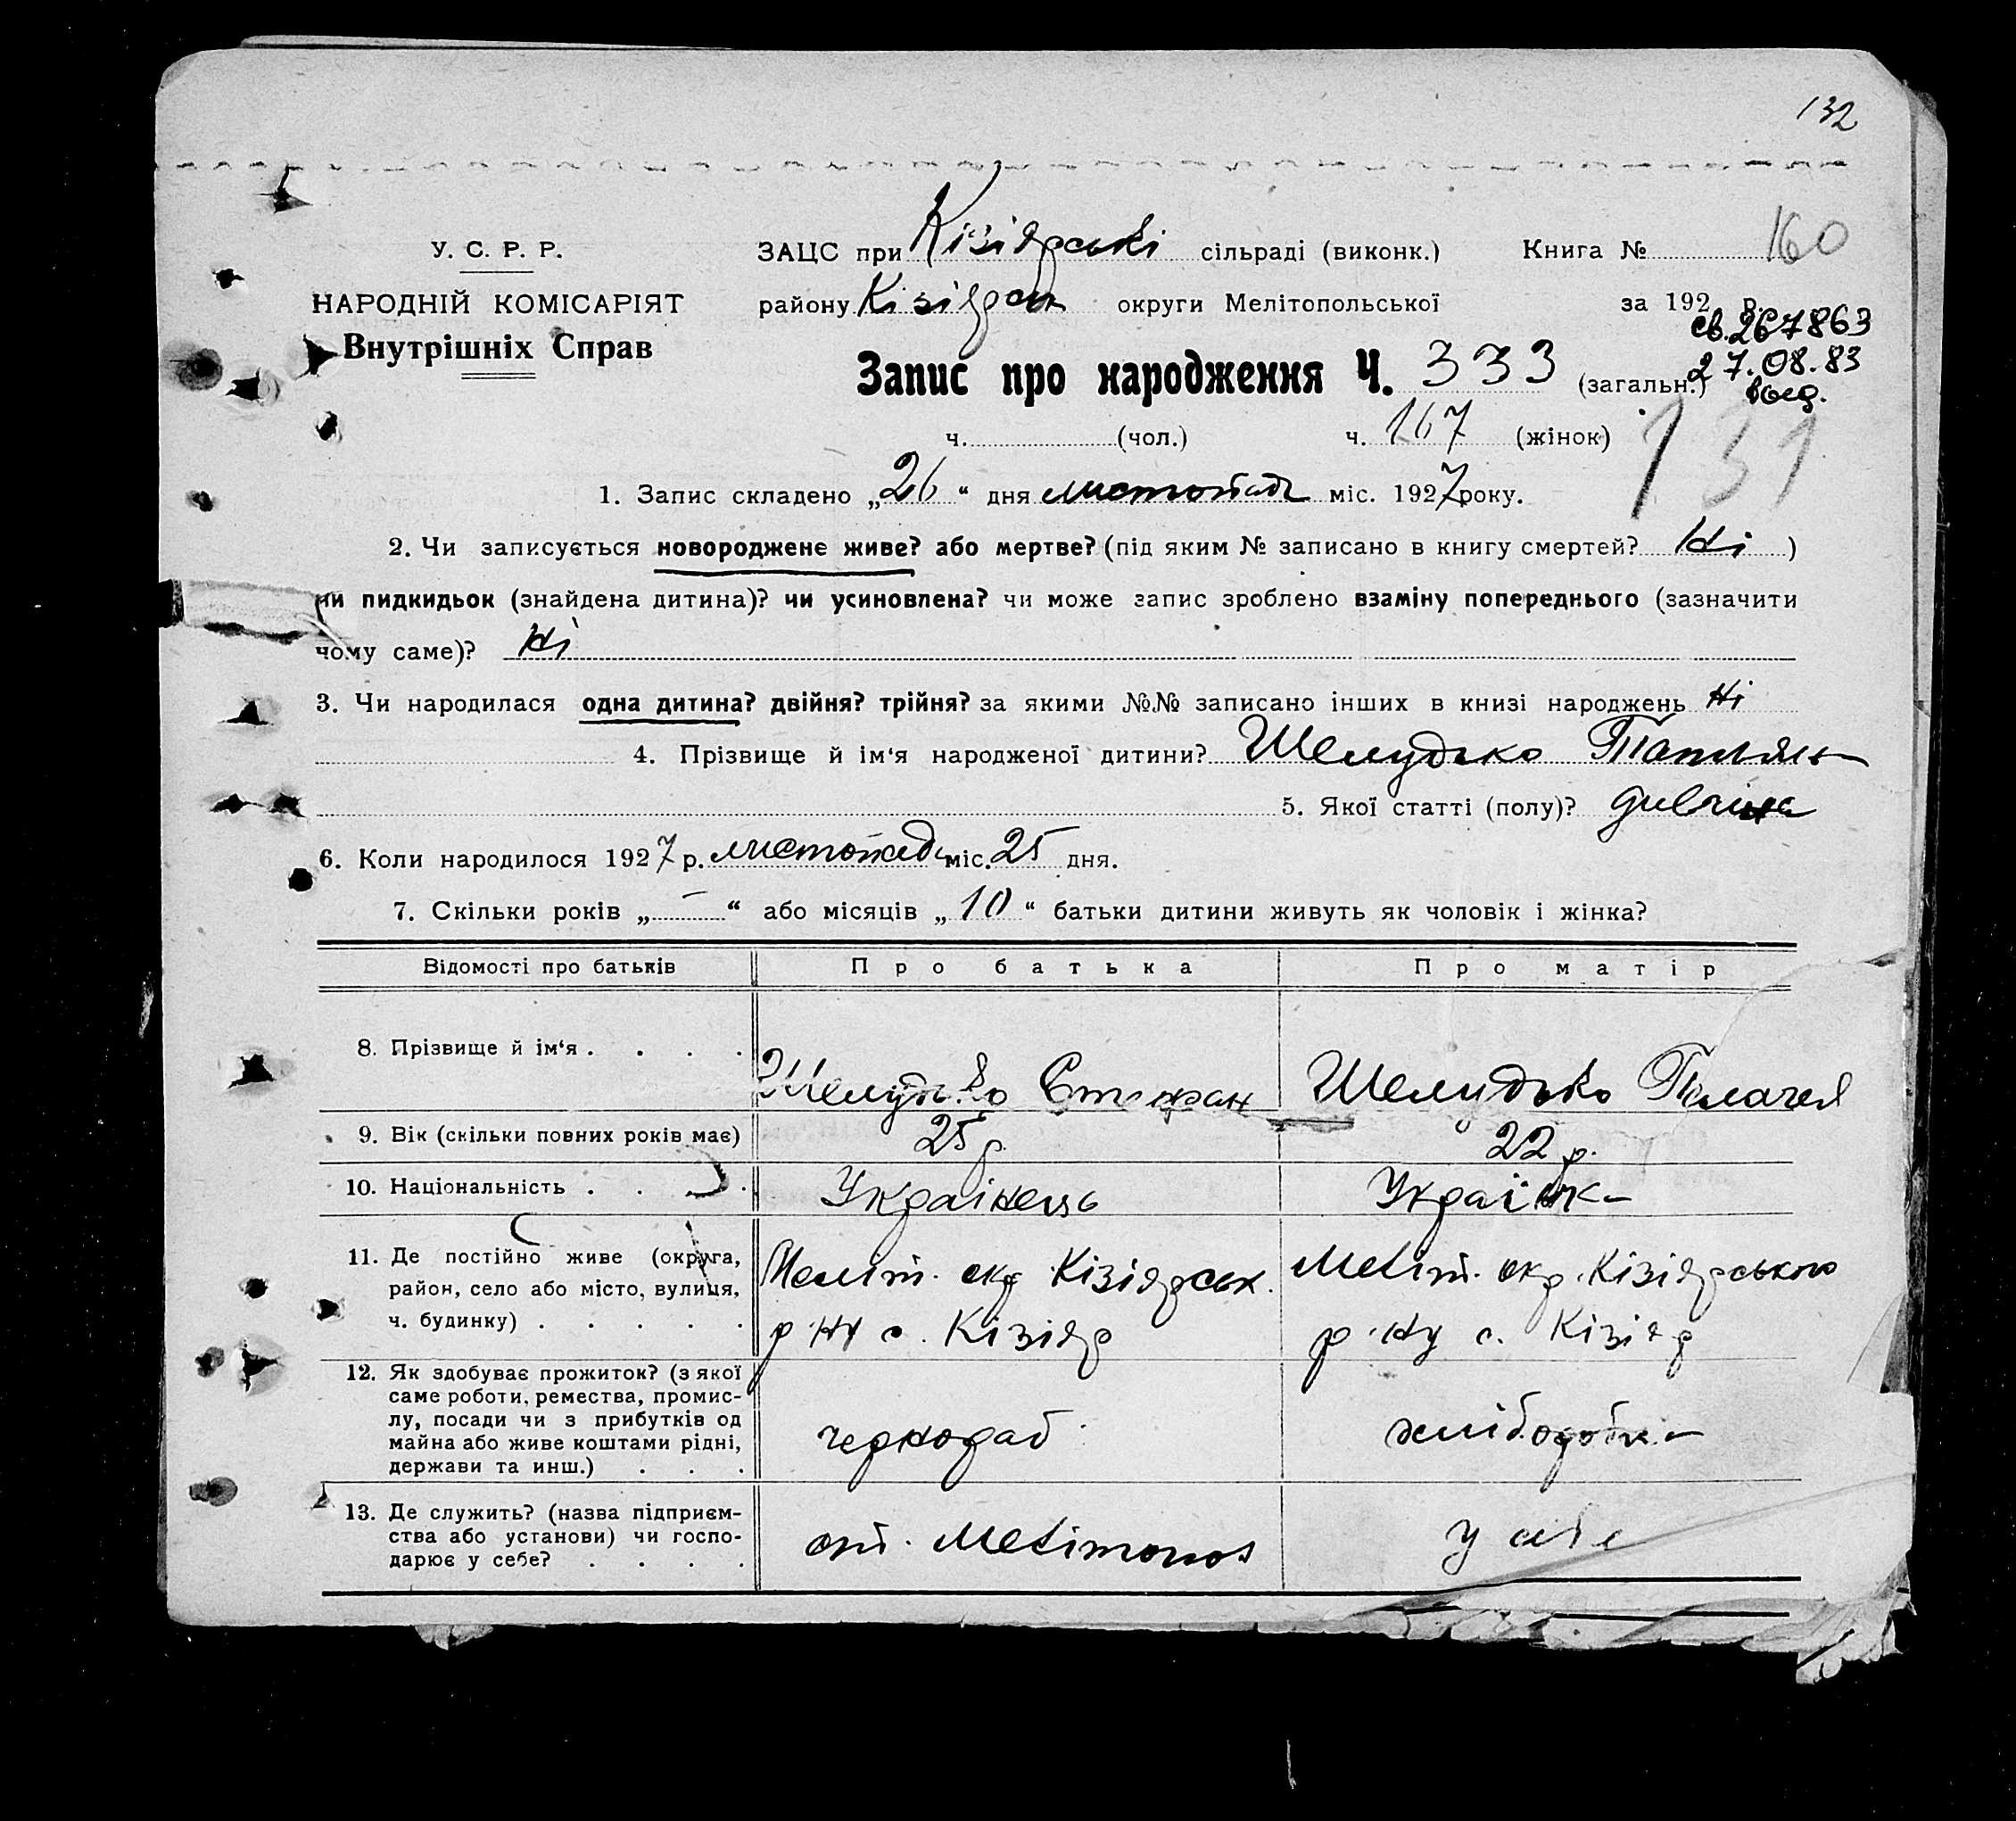 132
У. С. Р. Р.
ЗАЦС при Кізіярські сільраді (виконк.) Книга № 160
НАРОДНІЙ КОМІСАРІЯТ
району Кізіярськ округи Мелітопольської за 192 р.
св. 267863
Внутрішніх Справ
27.08.83
Запис про народження Ч. 333 (загальн.)
выд.
ч. (чол.) ч. 167 (жінок)
131
1. Запис складено „26“ дня листопада міс. 1927 року.
2. Чи записується новороджене живе? або мертве? (під яким № записано в книгу смертей? Ні )
чи пидкидьок (знайдена дитина)? чи усиновлена? чи може запис зроблено взаміну попереднього (зазначити
чому саме)? Ні
3. Чи народилася одна дитина? двійня? трійня? за якими №№ записано інших в книзі народжень Ні
4. Прізвище й ім‘я народженої дитини? Шелудько
5. Якої статті (полу)? дивчина
6. Коли народилося 1927 р. листопада міс. 25 дня.
7. Скільки років „—“ або місяців „10“ батьки дитини живуть як чоловік і жінка?
Відомості про батьків Про батька Про матір
8. Прізвище й ім‘я . . . .
Шелудько Стефан Шелудько Палагея
9. Вік (скільки повних років має) 25 р. 22 р.
10. Національність . . . . Українець Українка
11. Де постійно живе (округа,
район, село або місто, вулиця,
ч. будинку) . . . . .
Меліт. окр Кізіярськ.
р-ну с. Кізіяр
Меліт. окр. Кізіярського
р-ну с. Кізіяр
12. Як здобуває прожиток? (з якої
саме роботи, ремества, промис-
лу, посади чи з прибутків од
майна або живе коштами рідні,
держави та инш.) . . .
чернораб. хліборобка
13. Де служить? (назва підприєм-
ства або установи) чи госпо-
дарює у себе? . . . .
ст. Мелітополь
у себе